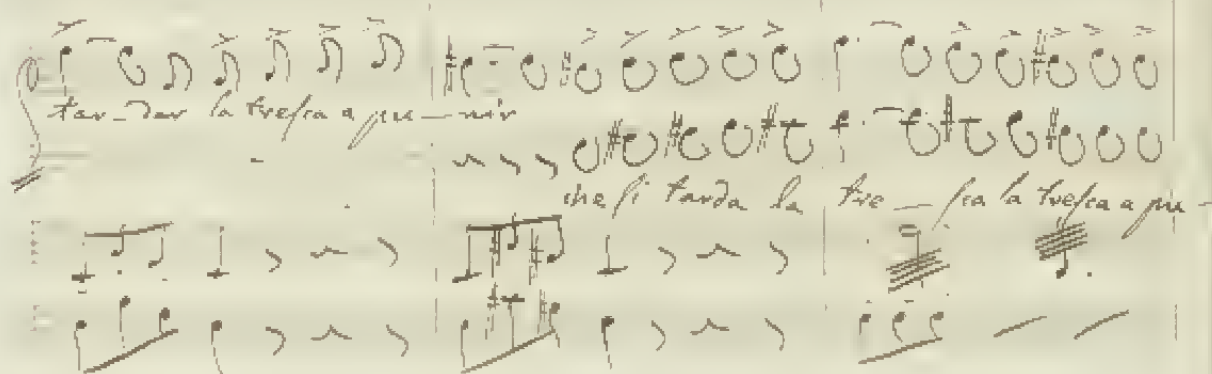 tar_dar la tresca a pu_nir
che si tarda la tre_sca la tresca a pu_